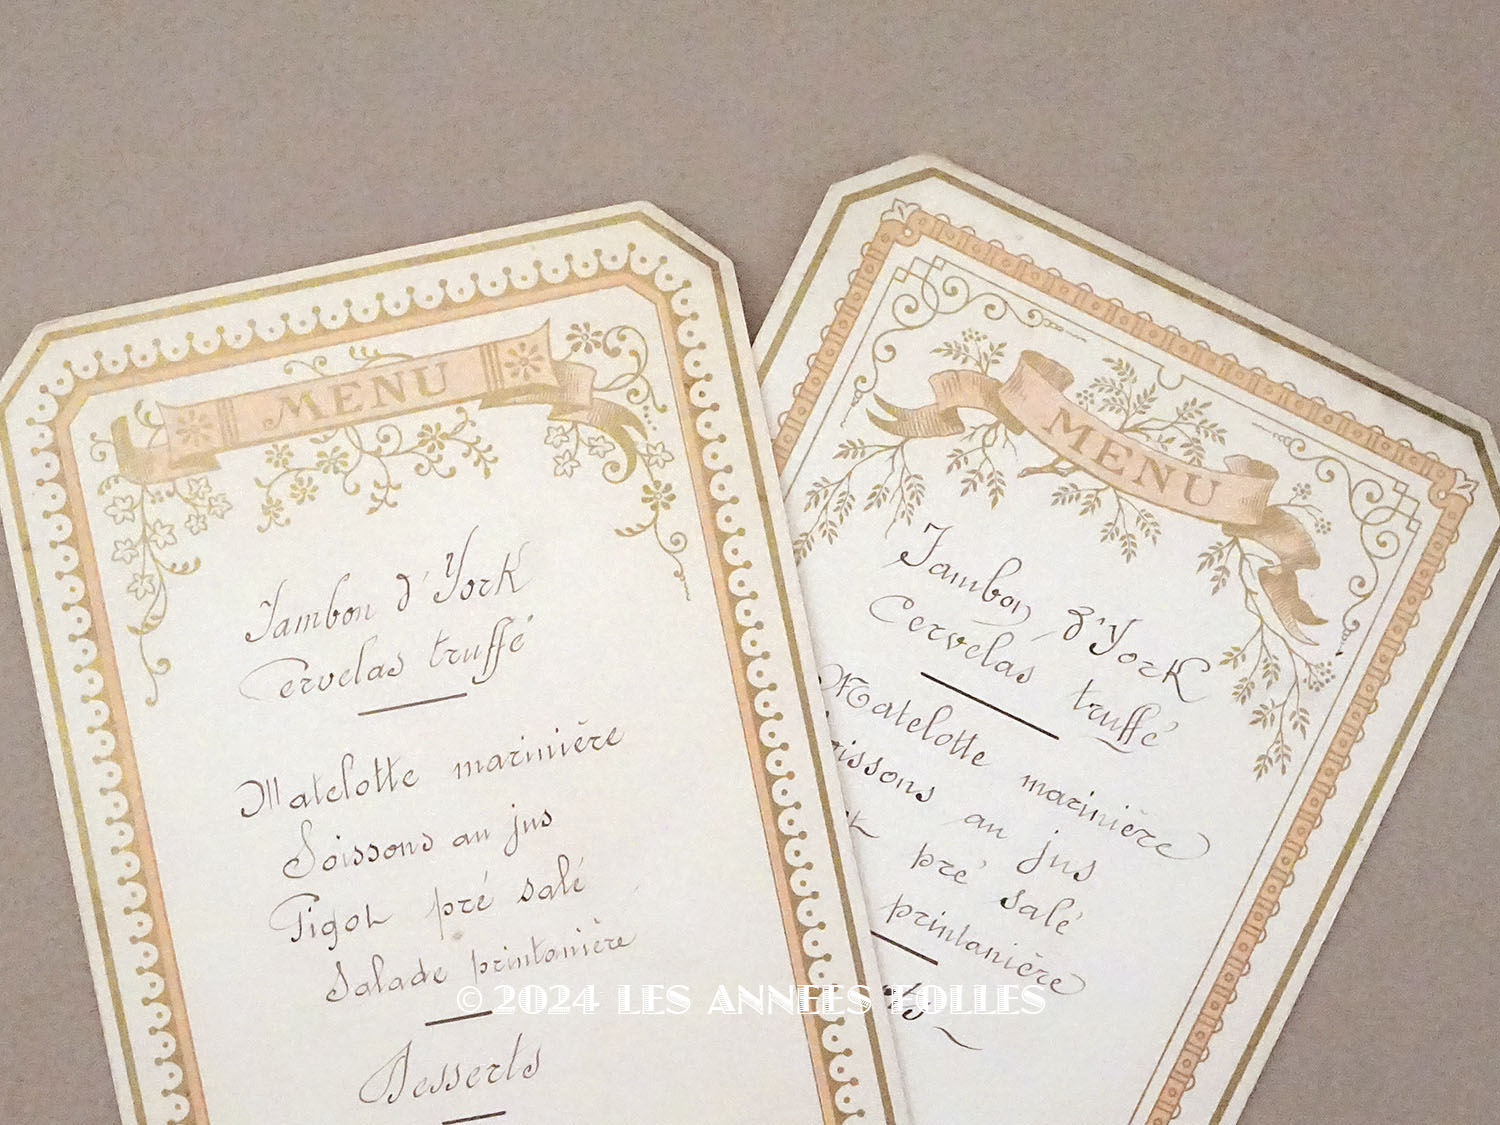 MENU
Jambon d'York
Cervelas truffé
Matelotte marinière
Soissons au jus
Gigot pré salé
Salade printanière
Desserts
MENU
Jambon d'York
Cervelas truffé
Matelotte marinière
issons au jus
pré salé
printanière
ts
© 2024 LES ANNEES FOLLES